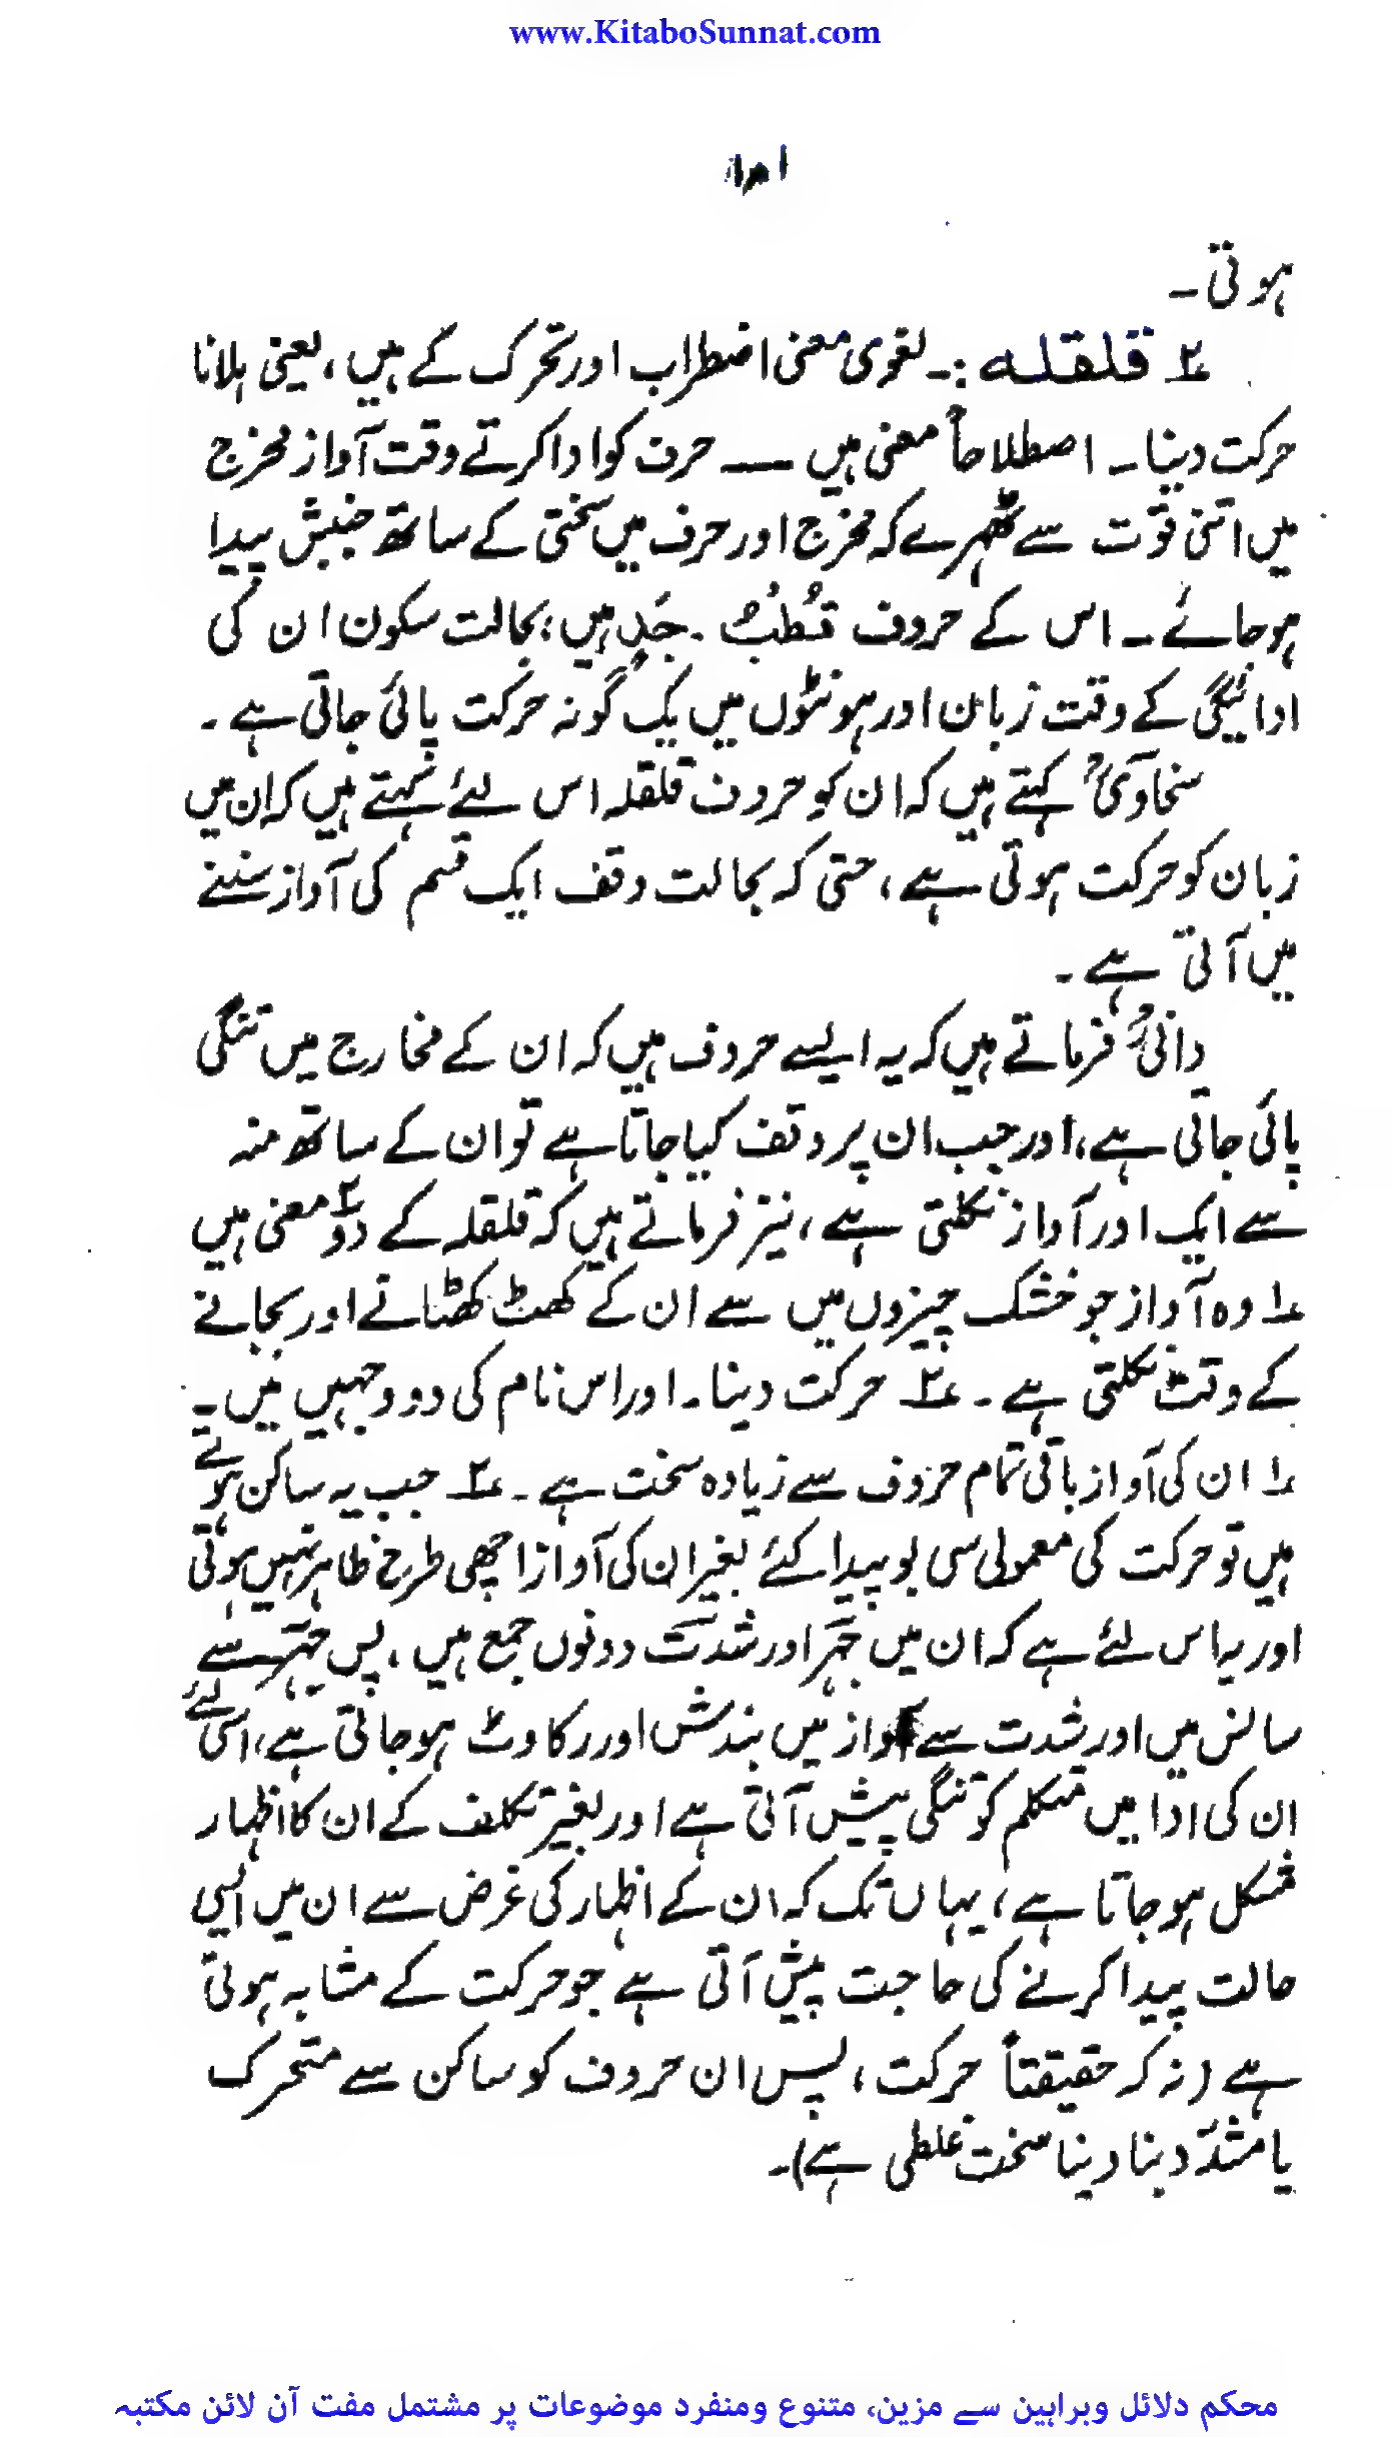 www.KitaboSunnat.com
ہوتی۔
۲؎ قلقلہ :۔ لغوی معنی اضطراب اور تحرک کے ہیں، یعنی ہلانا
حرکت دینا۔ اصطلاحاً معنی ہیں ــــ حرف کو ادا کرتے وقت آواز مخرج
میں اتنی قوّت سے ٹھہرے کہ مخرج اور حرف میں سختی کے ساتھ جنبش پیدا
ہو جائے۔ اس کے حروف قُطُبُ جَدٍّ ہیں، بحالت سکون ان کی
ادائیگی کے وقت زبان اور ہونٹوں میں یک گونہ حرکت پائی جاتی ہے۔
سخاویؒ کہتے ہیں کہ ان کو حروف قلقلہ اس لیئے کہتے ہیں کہ ان میں
زبان کو حرکت ہوتی ہے، حتی کہ بحالت وقف ایک قسم کی آواز سننے
میں آتی ہے۔
دانیؒ فرماتے ہیں کہ یہ ایسے حروف ہیں کہ ان کے مخارج میں تنگی
پائی جاتی ہے، اور جب ان پر وقف کیا جاتا ہے تو ان کے ساتھ منہ
سے ایک اور آواز نکلتی ہے، نیز فرماتے ہیں کہ قلقلہ کے دو۲ معنی ہیں
۱؎ وہ آواز جو خشک چیزوں میں سے ان کے کھٹ کھٹانے اور بجانے
کے وقت نکلتی ہے۔ ۲؎ حرکت دینا۔ اور اس نام کی دو وجہیں ہیں۔
۱؎ ان کی آواز باقی تمام حروف سے زیادہ سخت ہے۔ ۲؎ جب یہ ساکن ہوتے
ہیں تو حرکت کی معمولی سی بو پیدا کئے بغیر ان کی آواز اچھی طرح ظاہر نہیں ہوتی
اور یہ اس لئے ہے کہ ان میں جہر اور شدت دونوں جمع ہیں، پس جہر سے
سانس میں اور شدت سے آواز میں بندش اور رکاوٹ ہو جاتی ہے، اسی لئے
ان کی ادا میں متکلم کو تنگی پیش آتی ہے اور بغیر تکلف کے ان کا اظہار
مشکل ہو جاتا ہے، یہاں تک کہ ان کے اظہار کی غرض سے ان میں ایسی
حالت پیدا کرنے کی حاجت پیش آتی ہے جو حرکت کے مشابہ ہوتی
ہے (نہ کہ حقیقتاً حرکت، پس ان حروف کو ساکن سے متحرک
یا مشدّد بنا دینا سخت غلطی ہے)۔
محکم دلائل وبراہین سے مزین، متنوع ومنفرد موضوعات پر مشتمل مفت آن لائن مکتبہ